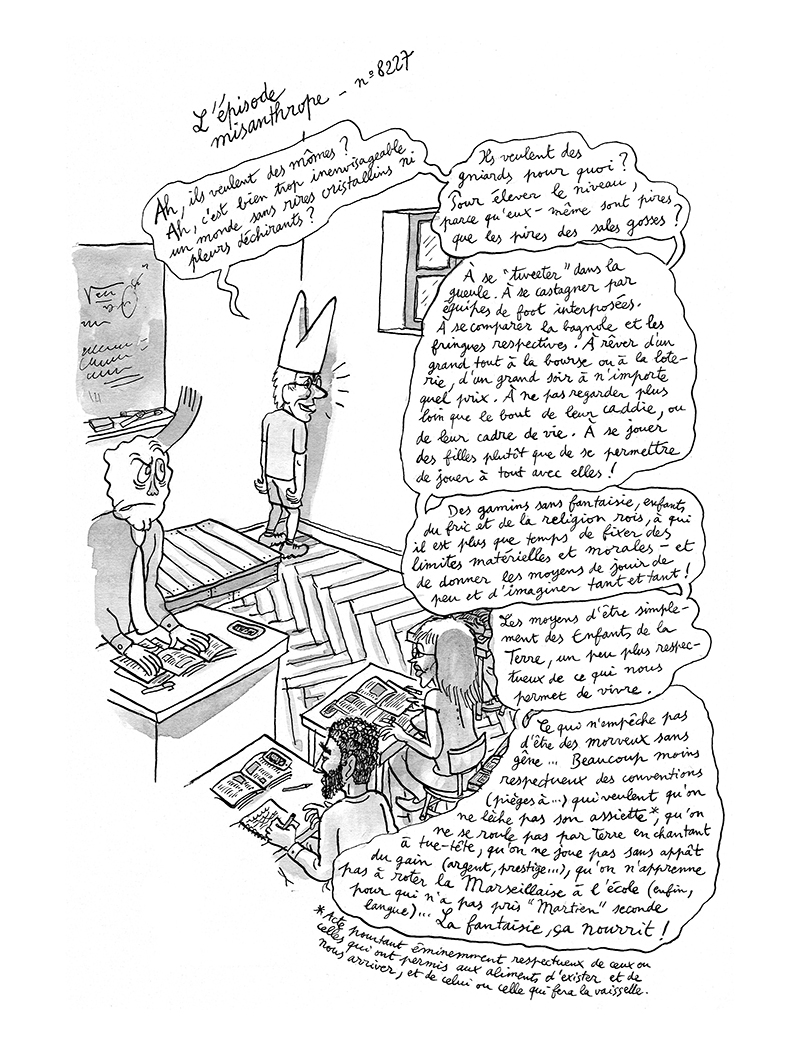 L'épisode
misanthrope - n°8227
Ah, ils veulent des mômes ?
Ah, c'est bien trop inenvisageable
un monde sans rires cristallins ni
pleurs déchirants ?
Ils veulent des
gniards pour quoi ?
Pour élever le niveau,
parce qu'eux-même sont pires
que les pires des sales gosses ?
À se "tweeter" dans la
gueule. À se castagner par
équipes de foot interposées.
À se comparer la bagnole et les
fringues respectives. À rêver d'un
grand tout à la bourse ou à la lote-
rie, d'un grand soir à n'importe
quel prix. À ne pas regarder plus
loin que le bout de leur caddie, ou
de leur cadre de vie. À se jouer
des filles plutôt que de se permettre
de jouer à tout avec elles !
Des gamins sans fantaisie, enfants
du fric et de la religion rois, à qui
il est plus que temps de fixer des
limites matérielles et morales - et
de donner les moyens de jouir de
peu et d'imaginer tant et tant !
Les moyens d'être simple-
ment des Enfants de la
Terre, un peu plus respec-
tueux de ce qui nous
permet de vivre.
Ce qui n'empêche pas
d'être des morveux sans
gêne... Beaucoup moins
respectueux des conventions
(pièges à...) qui veulent qu'on
ne lèche pas son assiette*, qu'on
ne se roule pas par terre en chantant
à tue-tête, qu'on ne joue pas sans appât
du gain (argent, prestige...), qu'on n'apprenne
pas à roter la Marseillaise à l'école (enfin,
pour qui n'a pas pris "Martien" seconde
langue)... La fantaisie, ça nourrit !
*Acte pourtant éminemment respectueux de ceux ou
celles qui ont permis aux aliments d'exister et de
nous arriver, et de celui ou celle qui fera la vaisselle.